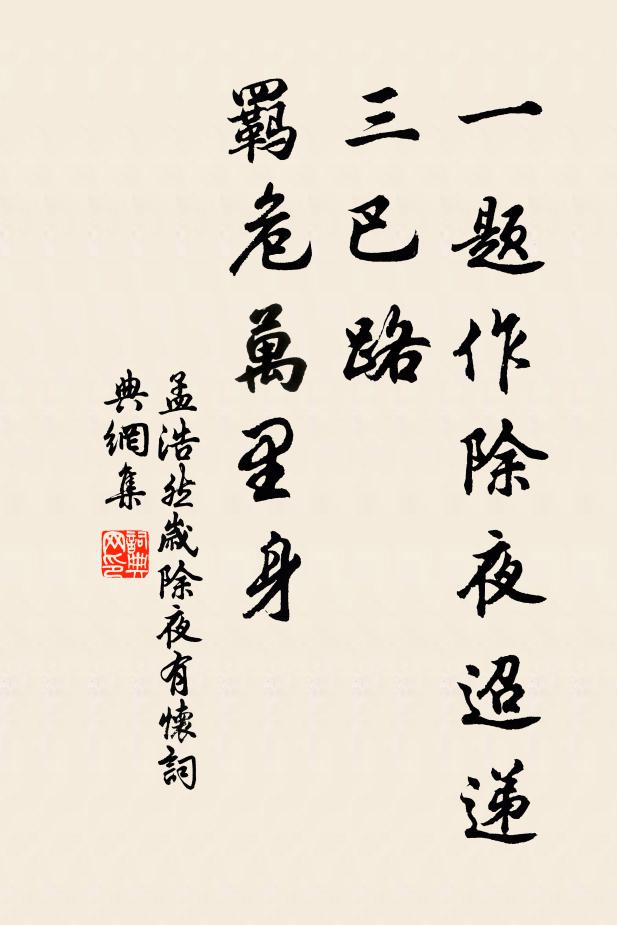 一题作除夜迢递
三巴路
羁危萬里身
孟浩然歲除夜有懷詞
典網集
詞典
网印